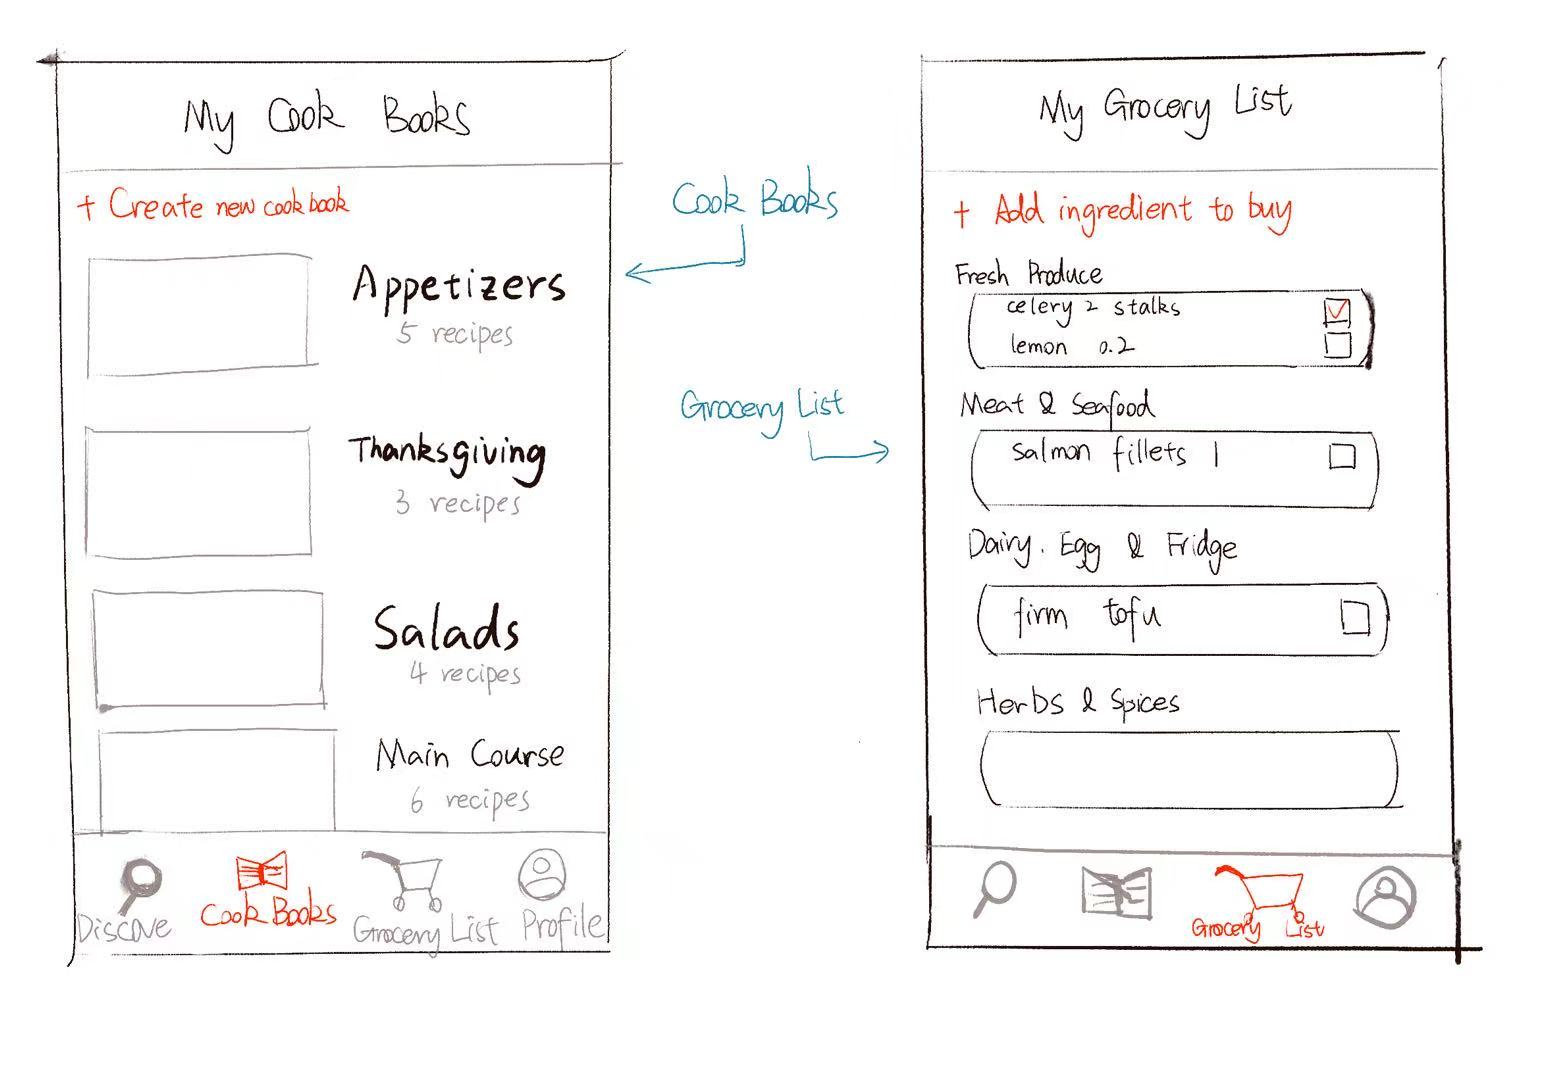 My Cook Books
+ Create new cook book
Appetizers
5 recipes
Thanksgiving
3 recipes
Salads
4 recipes
Main Course
6 recipes
Discove
Cook Books
Grocery List
Profile
Cook Books
Grocery List
My Grocery List
+ Add ingredient to buy
Fresh Produce
celery 2 stalks
lemon 0.2
Meat & Seafood
salmon fillets 1
Dairy. Egg & Fridge
firm tofu
Herbs & Spices
Grocery List